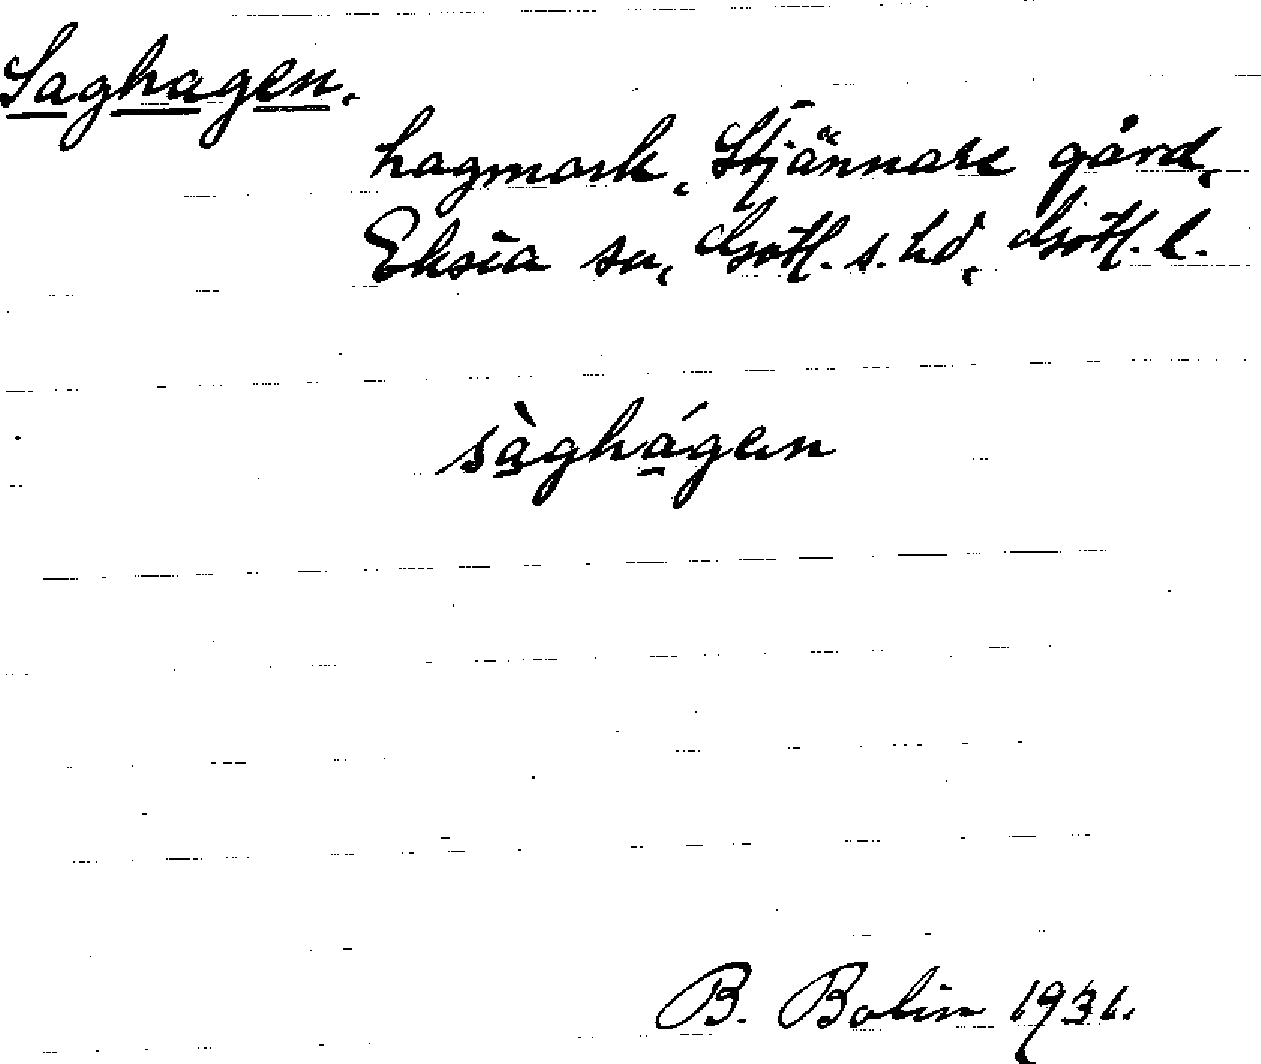 Saghagen.
hagmark, Stjännare gård,
Eksta sn, Gotl. s. hd, Gotl. l.
sàghágen
B. Bolin 1931.